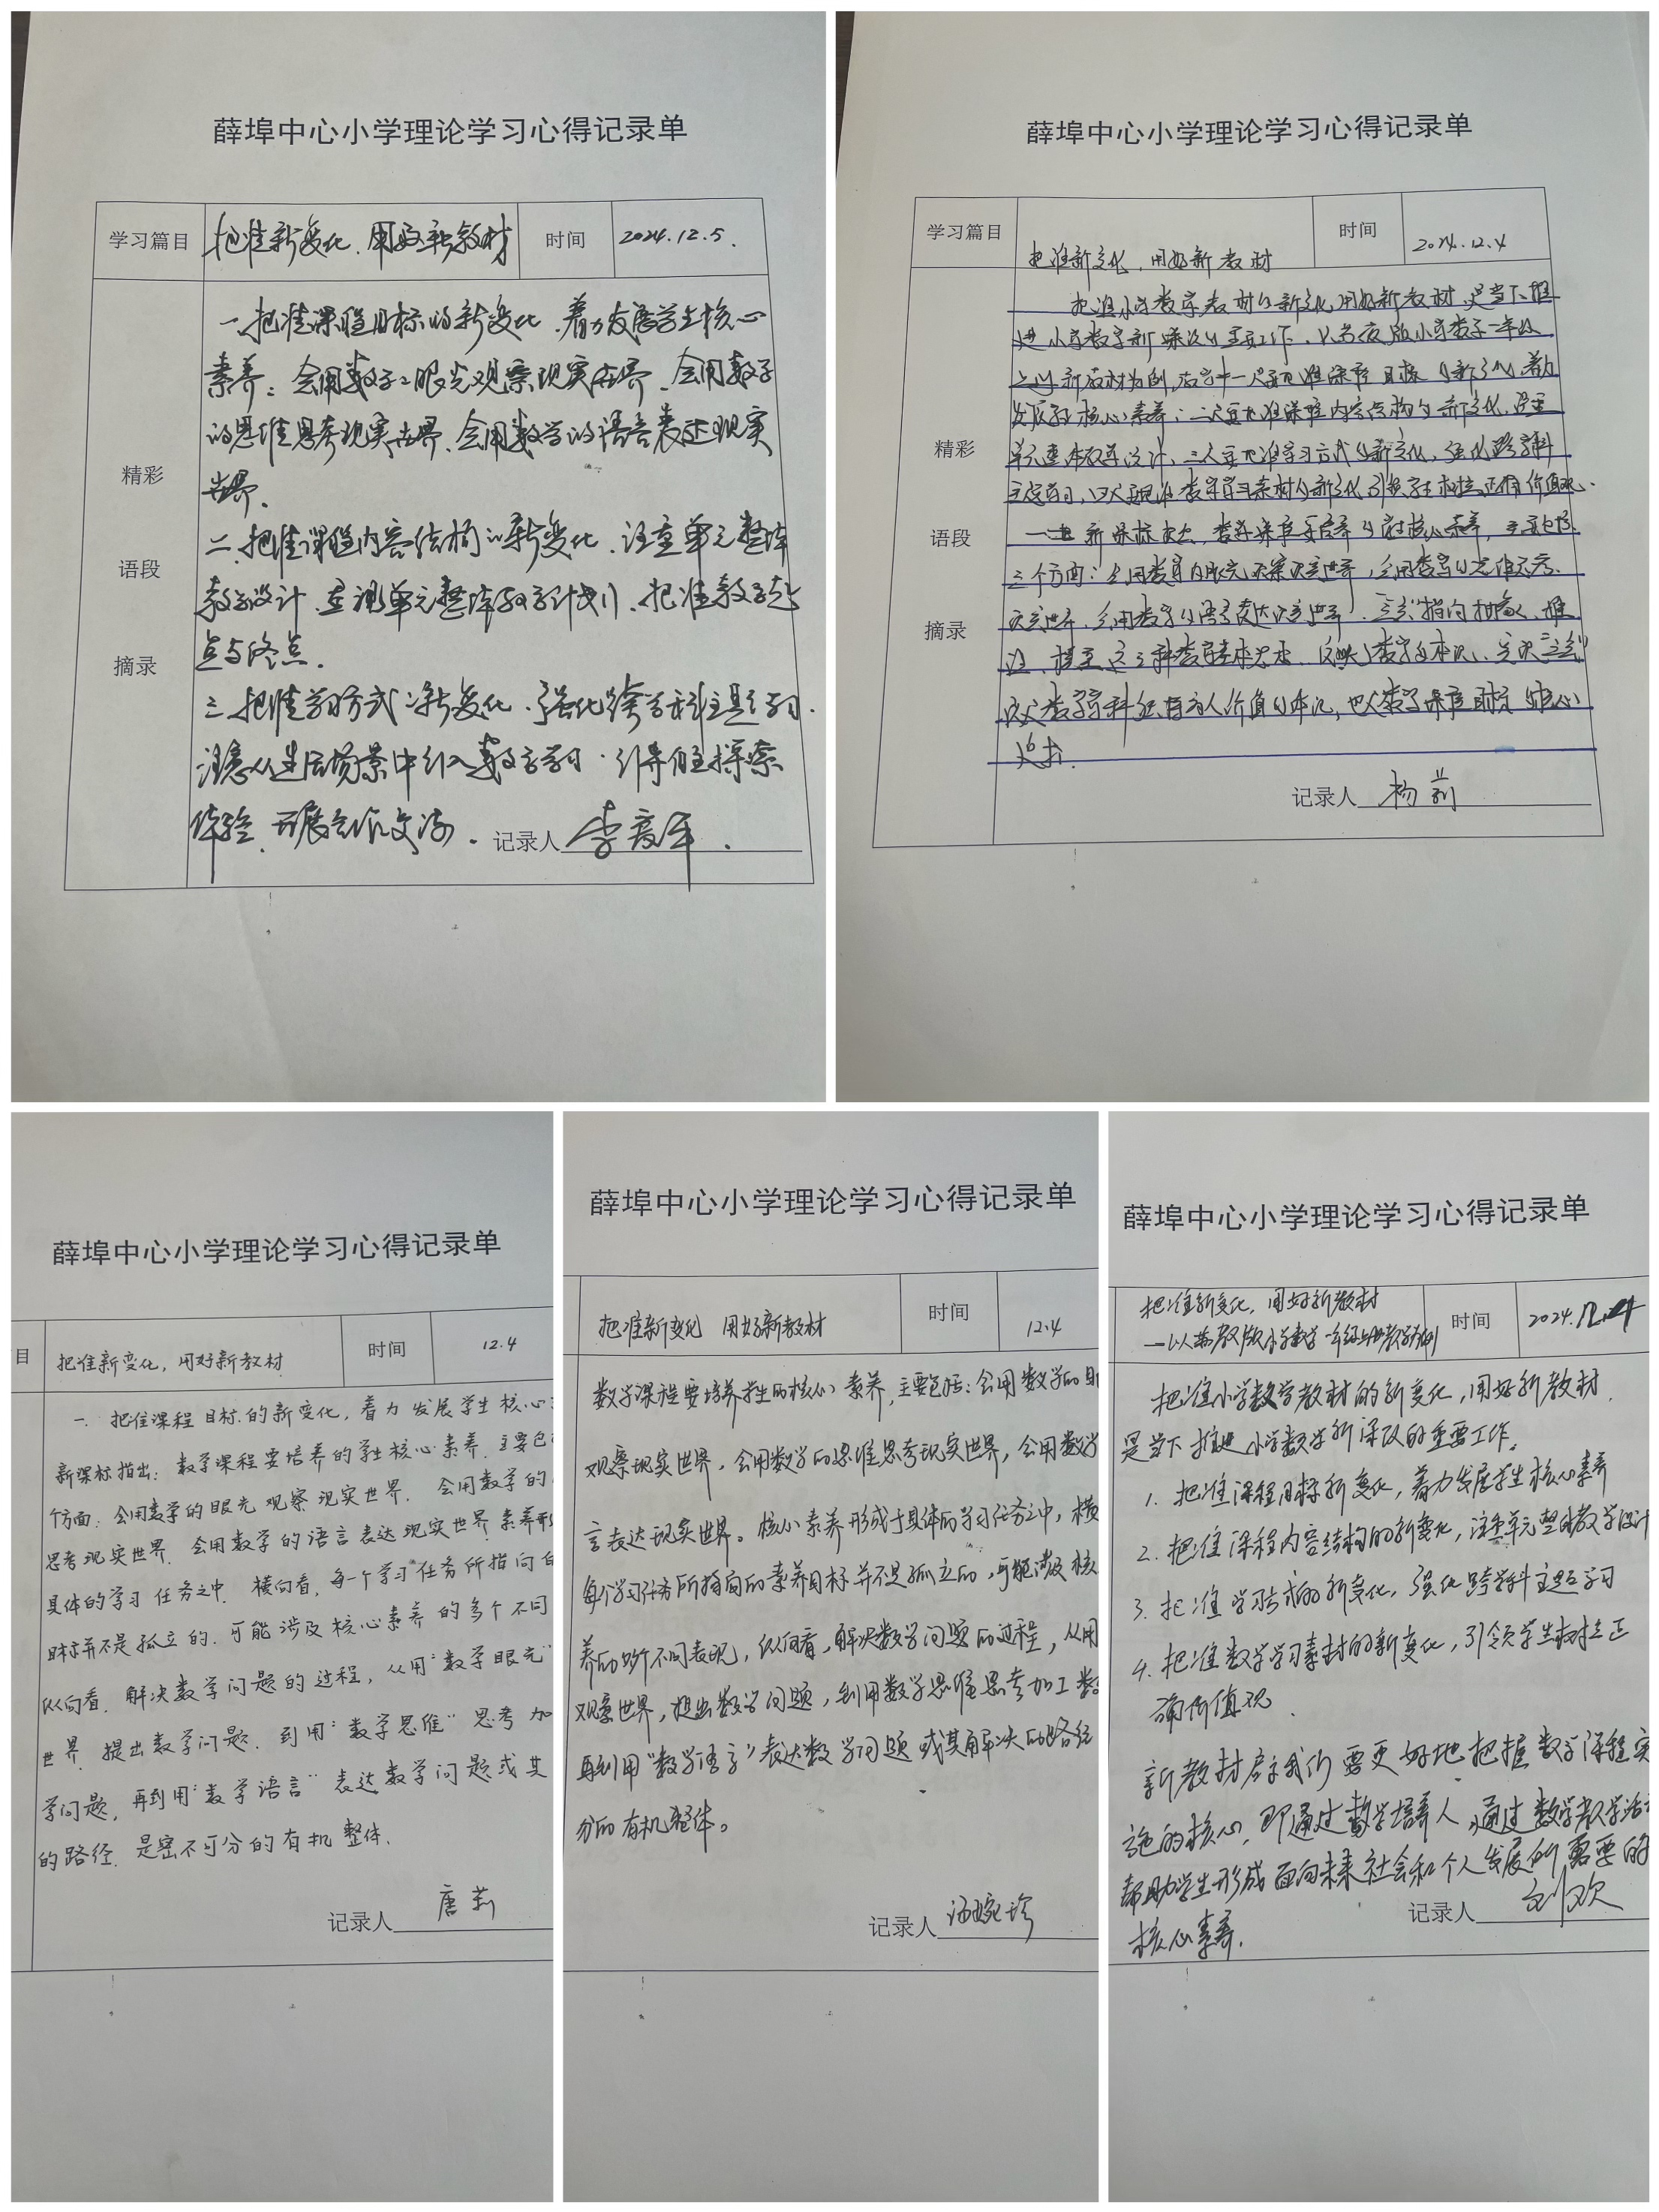 薛埠中心小学理论学习心得记录单
学习篇目
把准新变化、用好新教材
时间
2024.12.5.
精彩
语段
摘录
一、把准课程目标的新变化、着力发展学生核心
素养：会用数学的眼光观察现实世界、会用数学
的思维思考现实世界、会用数学的语言表达现实
世界.
二、把准课程内容结构的新变化、注重单元整体
教学设计、单元整体教学计划、把准教学起
点与终点.
三、把准学习方式的新变化、强化跨学科主题学习.
注意从生活场景中引入数学学习、引导自主探索
体验、开展合作交流.
记录人
薛埠中心小学理论学习心得记录单
学习篇目
把准新变化，用好新教材
时间
2024.12.4
精彩
语段
摘录
把准小学数学教材的新变化，用好新教材，是当下推
进小学数学新课改的重要工作.
新教材为例，一是要把准课程目标的新变化，着力
发展学生核心素养；二是要把准课程内容结构的新变化，注重
单元整体教学设计；三是要把准学习方式的新变化，强化跨学科
主题学习，四是要把准数学学习素材的新变化，引领学生树立正确价值观.
新课标指出，数学课程要培养的学生核心素养，主要包括
三个方面：会用数学的眼光观察现实世界，会用数学的思维思考
现实世界，会用数学的语言表达现实世界.
记录人 杨莉
薛埠中心小学理论学习心得记录单
目
把准新变化，用好新教材
时间
12.4
一、把准课程目标的新变化，着力发展学生核心
新课标指出：数学课程要培养的学生核心素养，主要包
个方面：会用数学的眼光观察现实世界，会用数学的
思考现实世界，会用数学的语言表达现实世界. 素养形
具体的学习任务之中. 横向看，每一个学习任务所指向的
目标并不是孤立的，可能涉及核心素养的多个不同
纵向看，解决数学问题的过程，从用“数学眼光”
世界，提出数学问题，到用“数学思维”思考加
学问题，再到用“数学语言”表达数学问题或其
的路径，是密不可分的有机整体.
记录人 唐莉
薛埠中心小学理论学习心得记录单
把准新变化 用好新教材
时间
12.4
数学课程要培养学生的核心素养，主要包括：会用数学的
观察现实世界，会用数学的思维思考现实世界，会用数学
言表达现实世界。核心素养形成于具体的学习任务之中，横
每个学习任务所指向的素养目标并不是孤立的，可能涉及核
养的多个不同表现，纵向看，解决数学问题的过程，从用
观察世界，提出数学问题，到用数学思维思考加工数
再到用“数学语言”表达数学问题或其解决的路径
分的有机整体。
记录人 汤婉珍
薛埠中心小学理论学习心得记录单
把准新变化，用好新教材
—以苏教版小学数学一年级上册教学为例
时间
2024.12.4
把准小学数学教材的新变化，用好新教材，
是当下推进小学数学新课改的重要工作。
1. 把准课程目标新变化，着力发展学生核心素养
2. 把准课程内容结构的新变化，注重单元整体教学设计
3. 把准学习方式的新变化，强化跨学科主题学习
4. 把准数学学习素材的新变化，引领学生树立正
确价值观.
新教材启示我们要更好地把握数学课程实
施的核心，即通过数学培养人，通过数学教学活
帮助学生形成面向未来社会和个人发展所需要的
核心素养.
记录人 刘欢